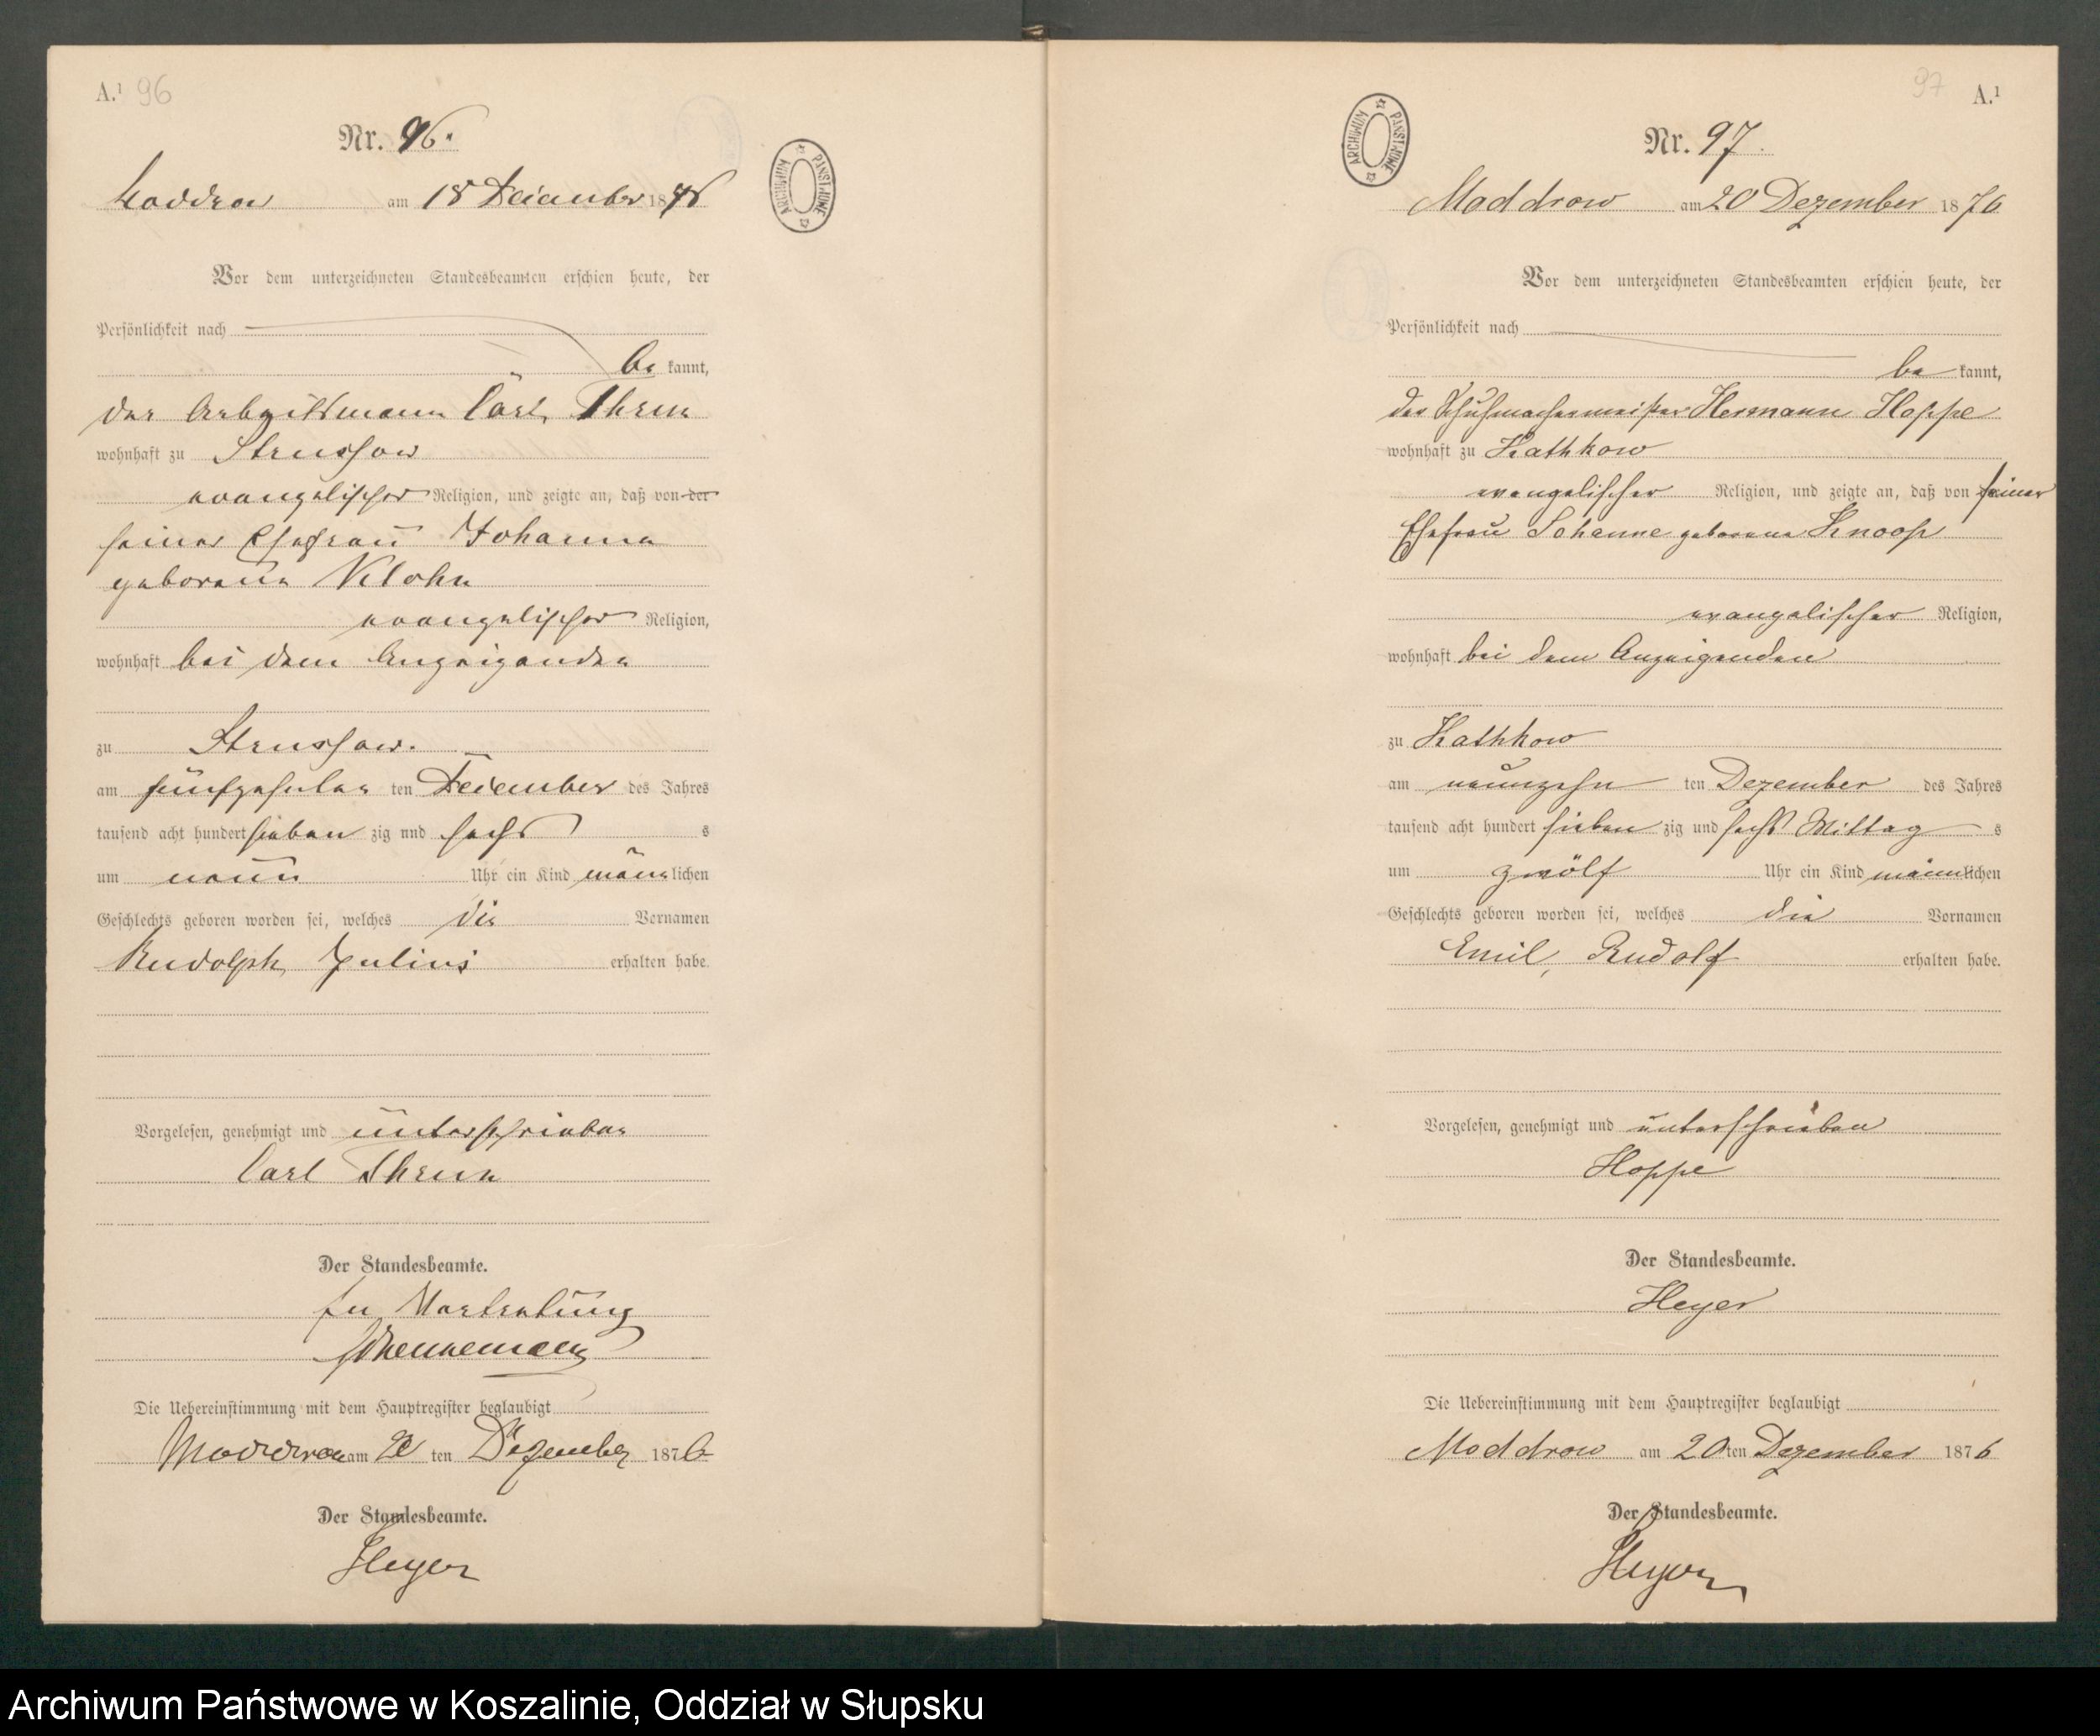 A.¹ 96
Nr. 96.
Moddrow am 18 Dezember 1876
Vor dem unterzeichneten Standesbeamten erschien heute, der
Persönlichkeit nach
be kannt,
der Arbeitsmann Carl Thrun
wohnhaft zu Strussow
evangelischer Religion, und zeigte an, daß von der
seiner Ehefrau Johanna
geborene Klohn
evangelischer Religion,
wohnhaft bei dem Anzeigenden
zu Strussow.
am fünfzehnten ten Dezember des Jahres
tausend acht hundert sieben zig und sechs s
um neun Uhr ein Kind männlichen
Geschlechts geboren worden sei, welches die Vornamen
Rudolph Julius erhalten habe.
Vorgelesen, genehmigt und unterschrieben
Carl Thrun
Der Standesbeamte.
In Vertretung
Die Uebereinstimmung mit dem Hauptregister beglaubigt
Moddrow am 20 ten Dezember 1876
Der Standesbeamte.
Heyer
97 A.¹
Nr. 97.
Moddrow am 20 Dezember 1876
Vor dem unterzeichneten Standesbeamten erschien heute, der
Persönlichkeit nach
be kannt,
der Schuhmachermeister Hermann Hoppe
wohnhaft zu Kathkow
evangelischer Religion, und zeigte an, daß von seiner
Ehefrau Johanne geborene Knoop
evangelischer Religion,
wohnhaft bei dem Anzeigenden
zu Kathkow
am neunzehn ten Dezember des Jahres
tausend acht hundert sieben zig und sechs Mittag s
um zwölf Uhr ein Kind männlichen
Geschlechts geboren worden sei, welches die Vornamen
Emil, Rudolf erhalten habe.
Vorgelesen, genehmigt und unterschrieben
Hoppe
Der Standesbeamte.
Heyer
Die Uebereinstimmung mit dem Hauptregister beglaubigt
Moddrow am 20ten Dezember 1876
Der Standesbeamte.
Heyer
ARCHIWUM PAŃSTWOWE
ARCHIWUM PAŃSTWOWE
Archiwum Państwowe w Koszalinie, Oddział w Słupsku